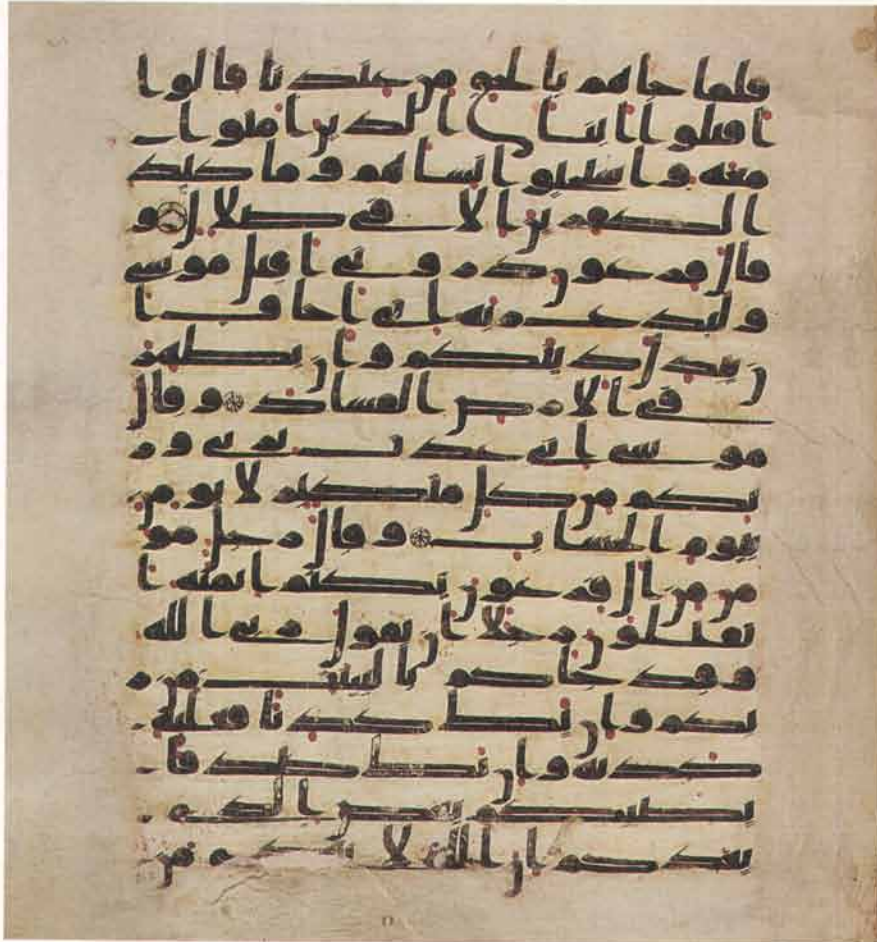 فلما جاهم بالحق من عندنا قالوا
اقتلوا ابنا الذين امنوا
معه واستحيوا نساهم وما كيد
الكفرين الا في ضلال و
قال فرعون ذروني اقتل موسى
وليدع ربه اني اخاف ا
ن يبدل دينكم وان يظهر
في الارض الفساد وقال
موسى اني عذت بربي ور
بكم من كل متكبر لا يومن
بيوم الحساب وقال رجل مو
من من ال فرعون يكتم ايمنه ا
تقتلون رجلا ان يقول ربي الله
وقد جاكم بالبينت من ر
بكم وان يك كذبا فعليه
كذبه وان يك صدقا
يصبكم بعض الذي
يعدكم ان الله لا يهدي من